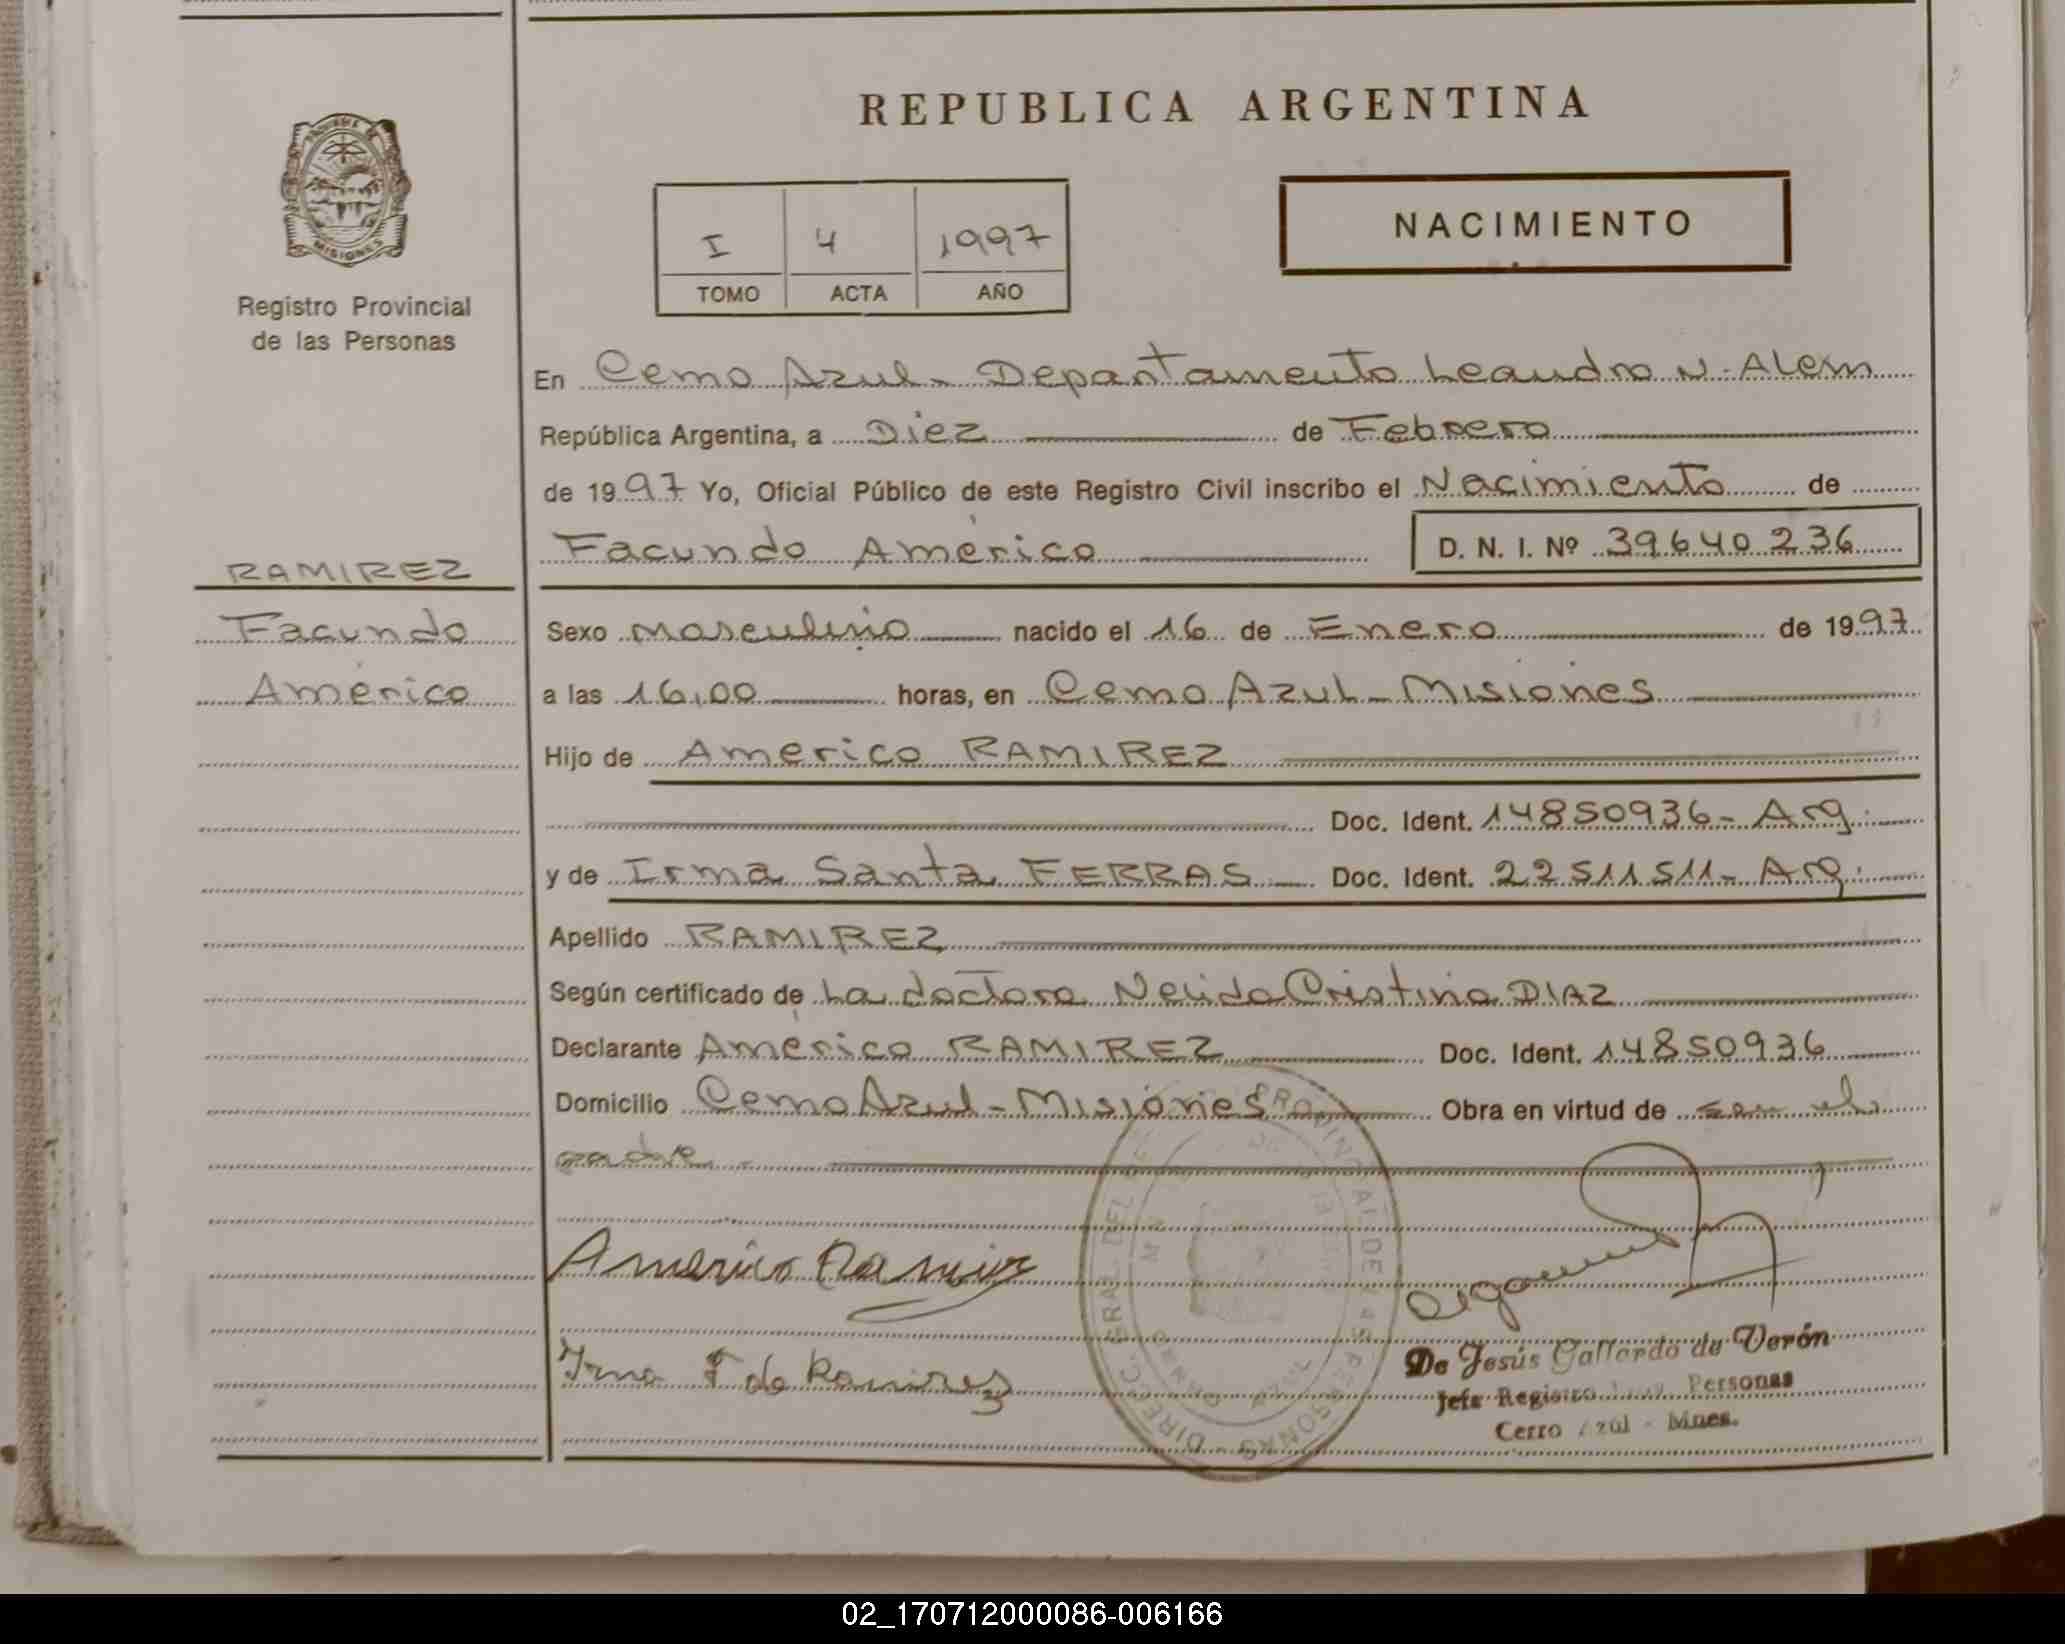 REPUBLICA ARGENTINA
NACIMIENTO
I 4 1997
TOMO ACTA AÑO
PROVINCIA DE
MISIONES
Registro Provincial
de las Personas
En Cerro Azul - Departamento Leandro N. Alem
República Argentina, a Diez de Febrero
de 1997 Yo, Oficial Público de este Registro Civil inscribo el Nacimiento de
Facundo Américo D. N. I. Nº 39640236
RAMIREZ
Facundo
Américo
Sexo masculino nacido el 16 de Enero de 1997
a las 16,00 horas, en Cerro Azul - Misiones
Hijo de Americo RAMIREZ
Doc. Ident. 14850936 - Arg.
y de Irma Santa FERRAS Doc. Ident. 22511511 - Arg.
Apellido RAMIREZ
Según certificado de La doctora Nelida Cristina DIAZ
Declarante Américo RAMIREZ Doc. Ident. 14850936
Domicilio Cerro Azul - Misiones Obra en virtud de ser el
padre.
Americo Ramirez
Irma F de Ramirez
DIREC. GRAL DEL REG. PROVINCIAL DE LAS PERSONAS
CERRO AZUL
De Jesús Gallardo de Verón
Jefe Registro Prov. Personas
Cerro Azul - Mnes.
02_170712000086-006166